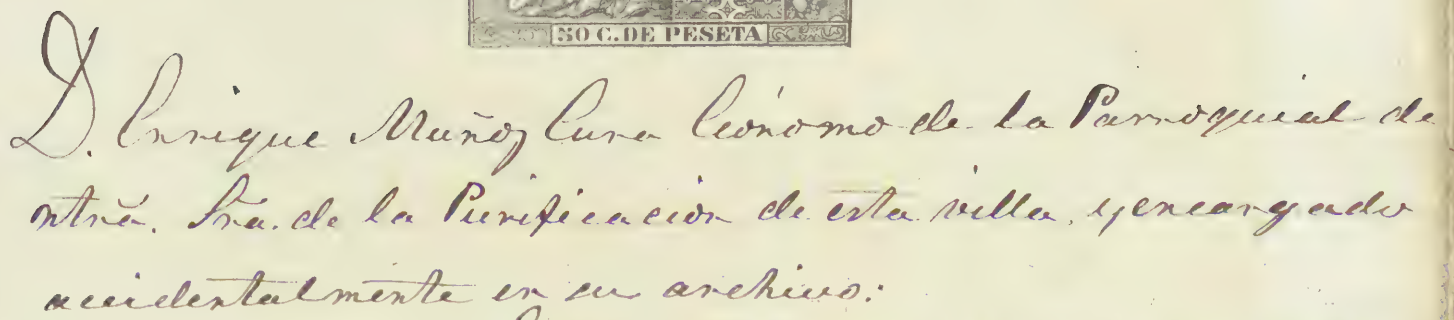 50 C. DE PESETA
D. Enrique Muñoz Cura Ecónomo de la Parroquial de
ntrã. Sra. de la Purificacion de esta villa, y encargado
accidentalmente en su archivo: